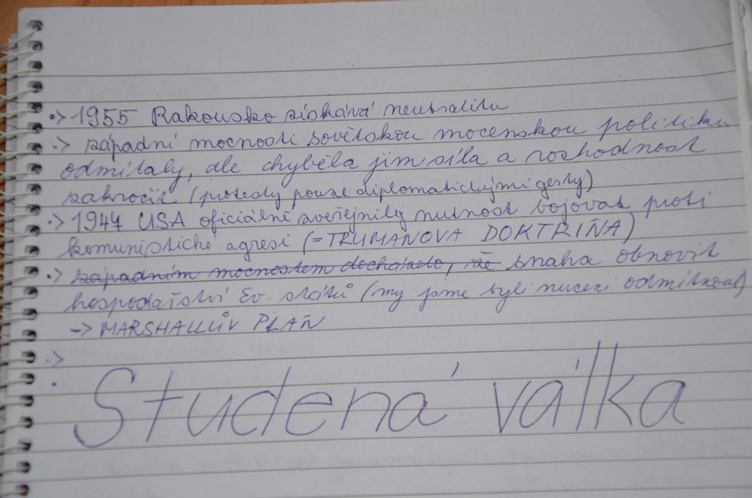 ·> 1955 Rakousko získává neutralitu
·> západní mocnosti sovětskou mocenskou politiku
odmítaly, ale chyběla jim síla a rozhodnost
zakročit (protesty pouze diplomatickými gesty)
·> 1947 USA oficiálně zveřejnily nutnost bojovat proti
komunistické agresi (= TRUMANOVA DOKTRÍNA)
·> západním mocnostem docházelo, že snaha obnovit
hospodářství Ev. států (my jsme byli nuceni odmítnout)
-> MARSHALLŮV PLÁN
·>
·
Studená válka